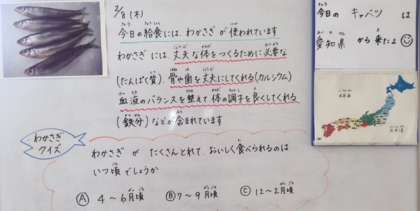 2/8 (木)
今日の給食には、わかさぎ が 使われています
わかさぎ には、丈夫な体をつくるために必要な
(たんぱく質)、骨や歯を丈夫にしてくれる(カルシウム)
血液のバランスを整えて 体の調子を良くしてくれる
(鉄分) などが 含まれています
わかさぎ
クイズ
わかさぎ が たくさんとれて、おいしく食べられるのは
いつ頃 でしょうか
Ⓐ 4～6月頃 Ⓑ 7～9月頃 Ⓒ 12～2月頃
今日の キャベツ は
愛知県 から来たよ